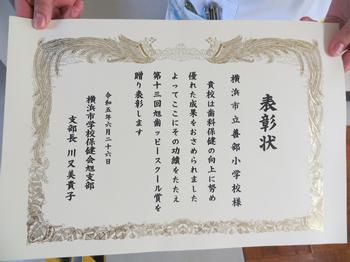 表彰状
横浜市立善部小学校様
貴校は歯科保健の向上に努め
優れた成果をおさめられました
よってここにその功績をたたえ
第十三回旭歯ッピースクール賞を
贈り表彰します
令和五年六月二十六日
横浜市学校保健会旭支部
支部長 川又美貴子